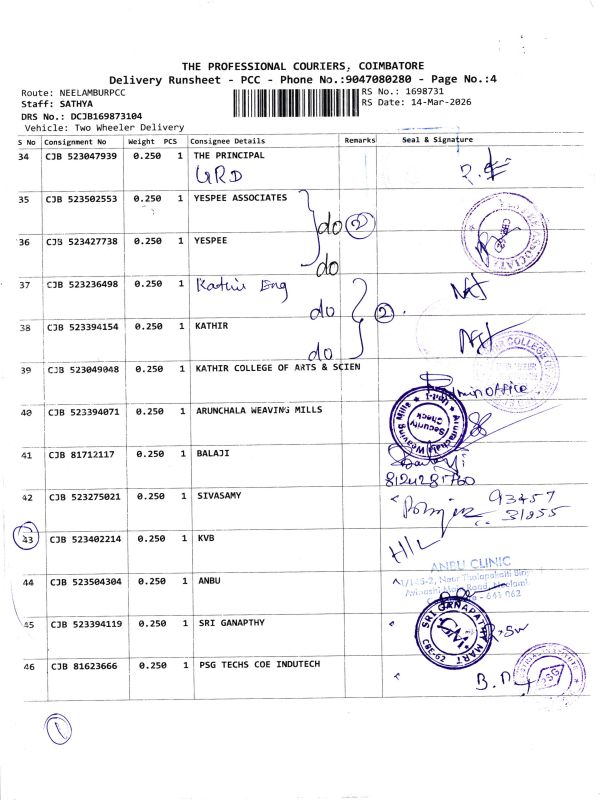 THE PROFESSIONAL COURIERS, COIMBATORE
Delivery Runsheet - PCC - Phone No.:9047080280 - Page No.:4
Route: NEELAMBURPCC
RS No.: 1698731
Staff: SATHYA
RS Date: 14-Mar-2026
DRS No.: DCJB169873104
Vehicle: Two Wheeler Delivery
S No Consignment No Weight PCS Consignee Details Remarks Seal & Signature
34 CJB 523047939 0.250 1 THE PRINCIPAL
GRD
35 CJB 523502553 0.250 1 YESPEE ASSOCIATES
do 2
36 CJB 523427738 0.250 1 YESPEE
do
37 CJB 523236498 0.250 1 Kathir Eng
do 2
38 CJB 523394154 0.250 1 KATHIR
do
39 CJB 523049048 0.250 1 KATHIR COLLEGE OF ARTS & SCIEN
Admin Office
40 CJB 523394071 0.250 1 ARUNCHALA WEAVING MILLS
Arunachala Weaving Mills
Security Check
41 CJB 81712117 0.250 1 BALAJI
8124281760
42 CJB 523275021 0.250 1 SIVASAMY
93457
31855
43 CJB 523402214 0.250 1 KVB
H/L
44 CJB 523504304 0.250 1 ANBU
ANBU CLINIC
45 CJB 523394119 0.250 1 SRI GANAPTHY
SRI GANAPATHY MART
CBE-62
46 CJB 81623666 0.250 1 PSG TECHS COE INDUTECH
PSG
1